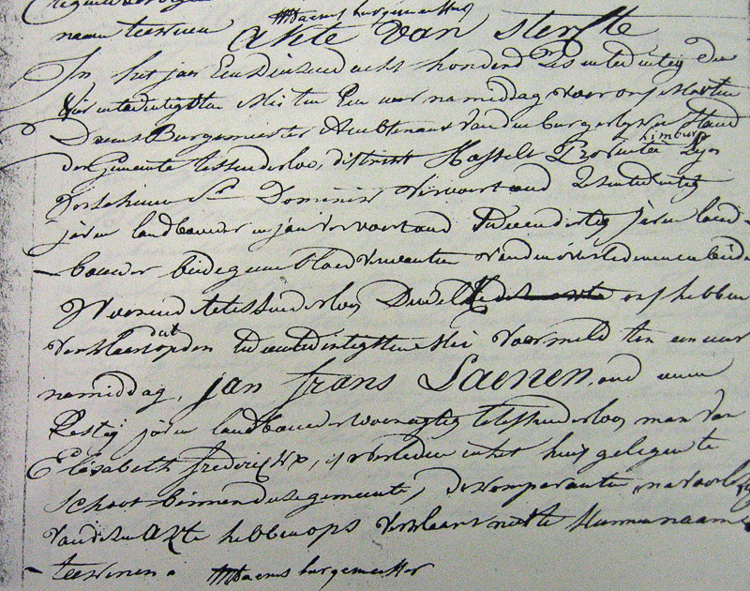 naam teekenen burgemeester
Akte van sterfte
In het jaar Een Duizend acht honderd zes en twintig den
vier en twintigsten Mei ten Een uur namiddag voor ons Martin
Daems Burgemeester Ambtenaar van den burgerlyken Stand
limburg
der Gemeente Tessenderloo, district Hasselt Provintie
verschenen Dominis Vervoort oud zes en twintig
jaren landbouwer en jan Vervoort oud Tweendertig jaren land-
bouwer beide gene bloedverwanten van den overledenen en beide
Woonende te tessenderloo Dewelke ons hebben
dat
verklaert op den twintigsten Mei voormeld ten een uur
namiddag, jan frans Laenen, oud een
Zestig jaren landbouwer woonagtig te tessenderloo man van
Elisabeth frederickx, is overleden in het huis gelegen te
Schoot binnen deze gemeente, de komparanten, na voorlezing
van dezen Akte hebben ons verklaart niet te kunnen naam
teekenen. Daems burgemeester